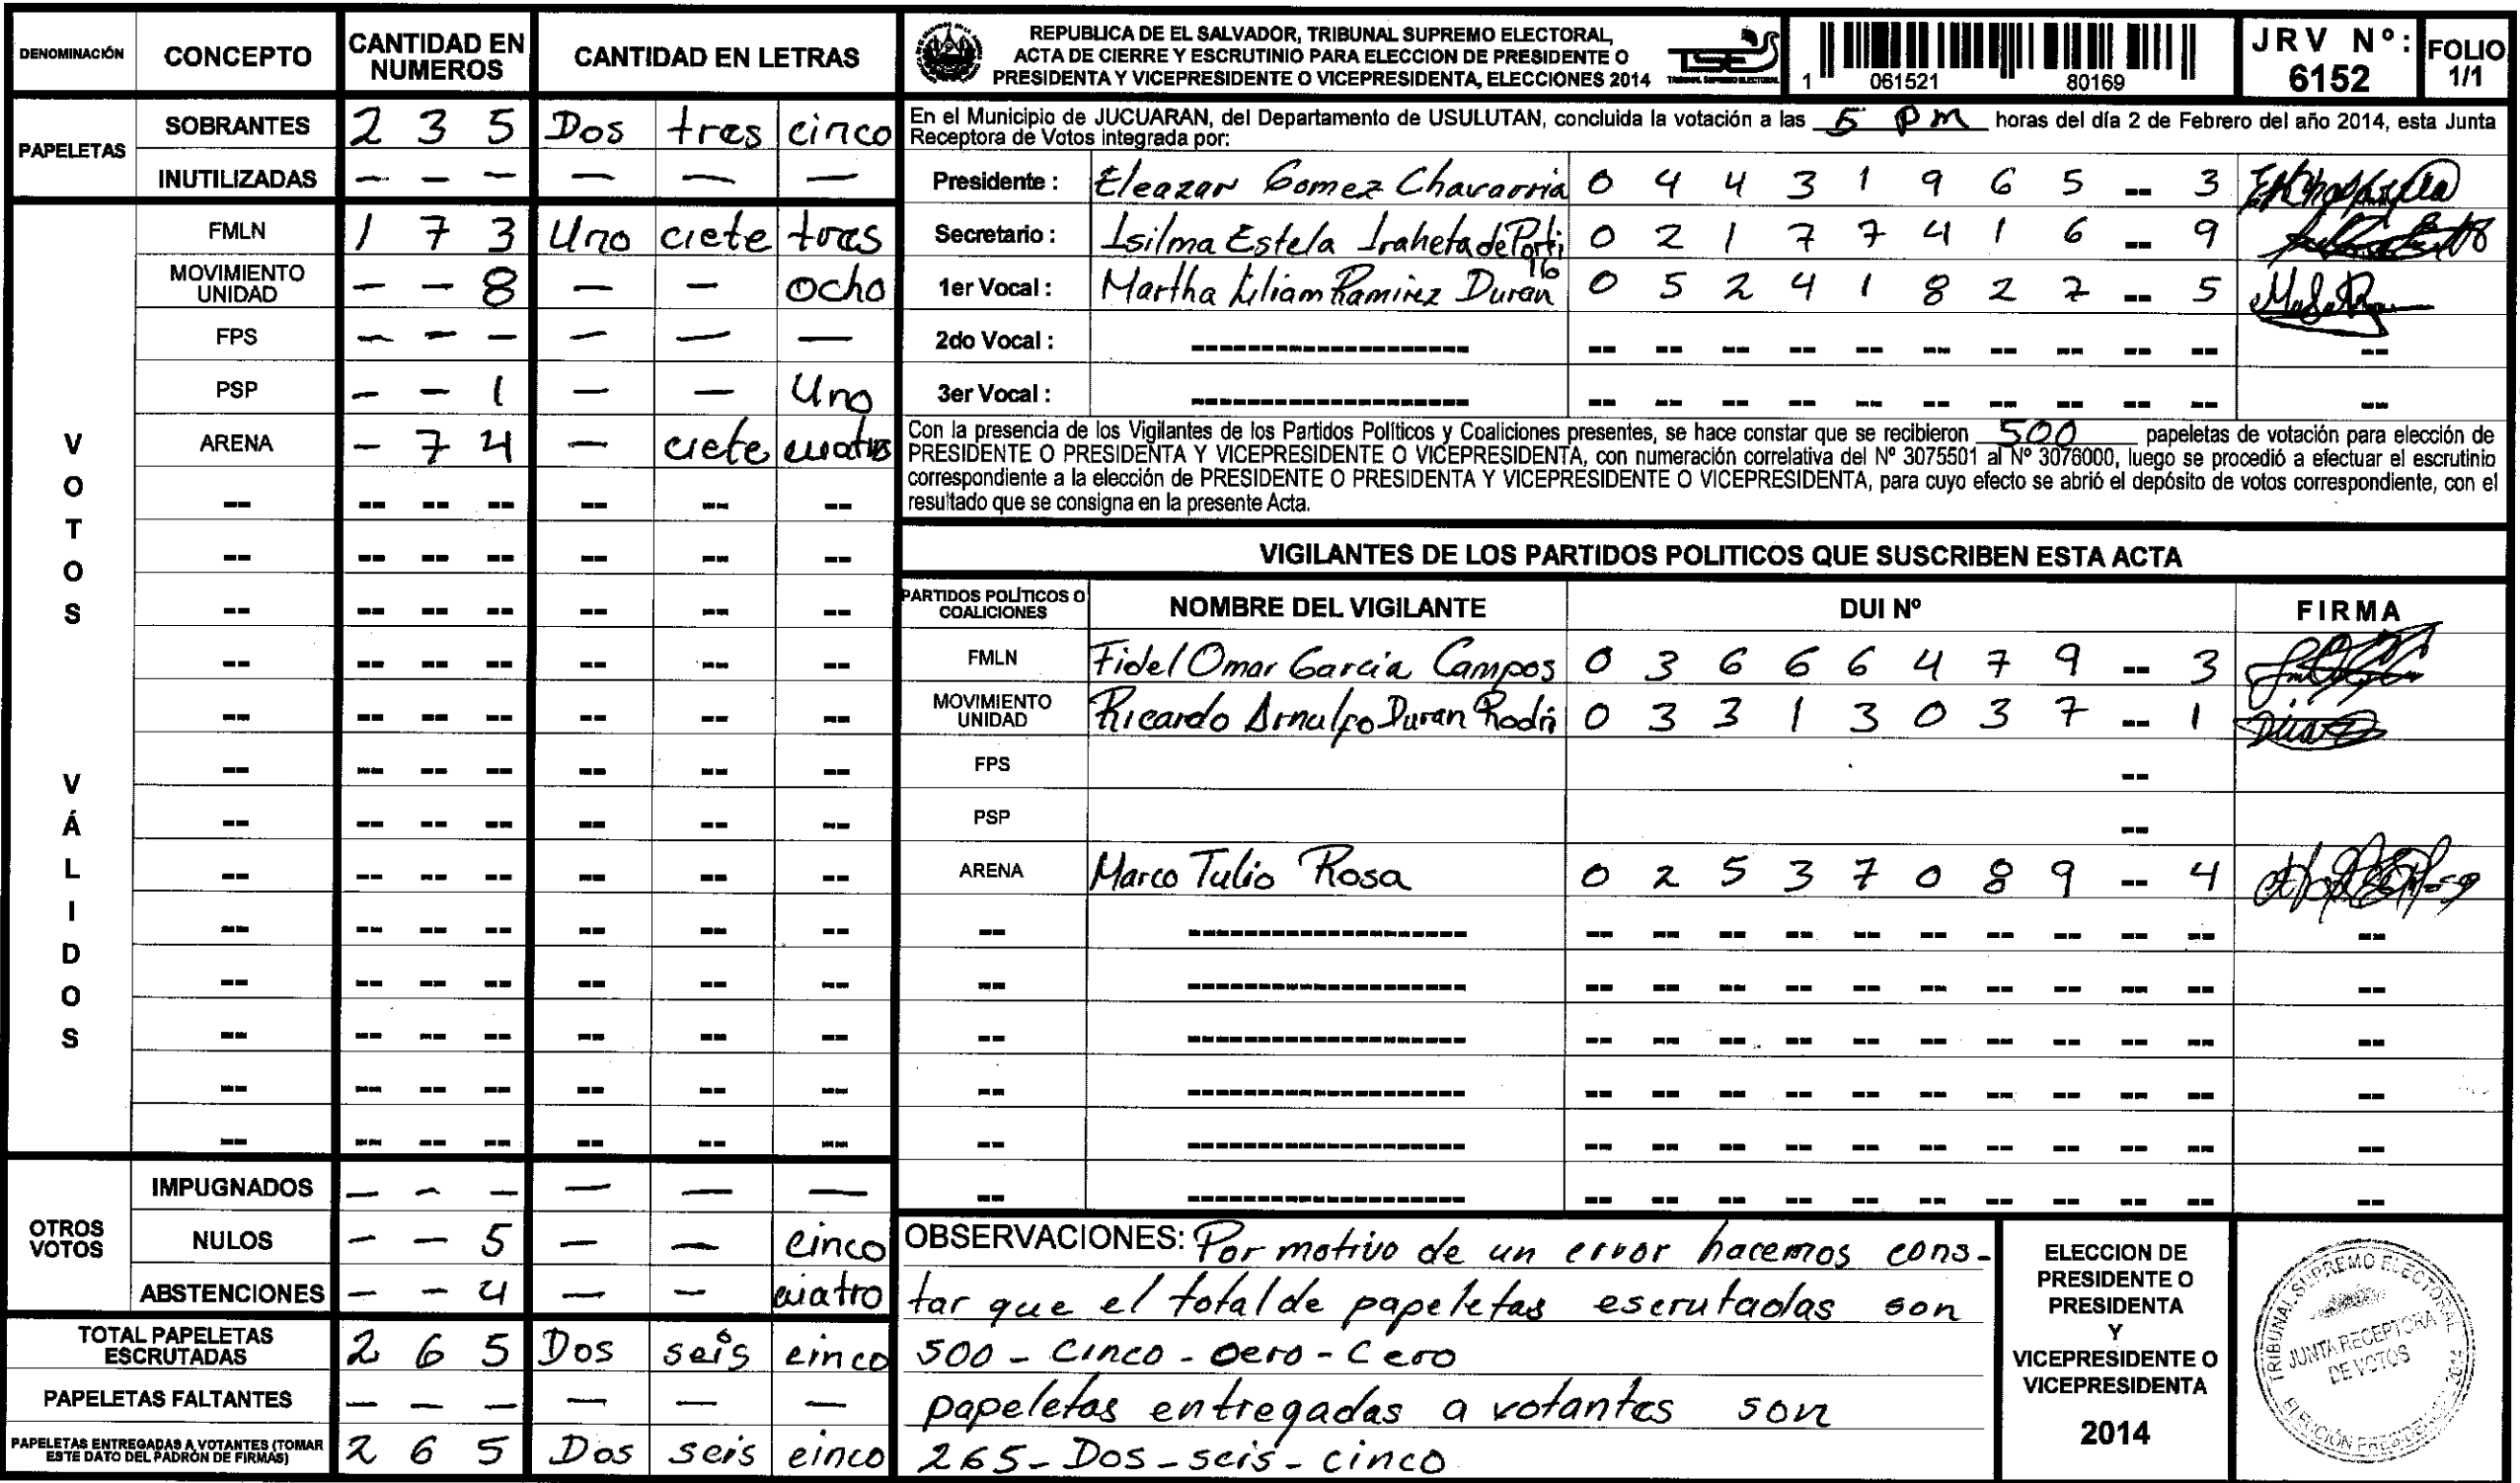 DENOMINACIÓN CONCEPTO CANTIDAD EN NUMEROS CANTIDAD EN LETRAS
PAPELETAS
SOBRANTES 2 3 5 Dos tres cinco
INUTILIZADAS — — — — — —
VOTOS VÁLIDOS
FMLN 1 7 3 Uno ciete tres
MOVIMIENTO UNIDAD — — 8 — — ocho
FPS — — — — — —
PSP — — 1 — — Uno
ARENA — 7 4 — ciete cuatro
-- -- -- -- -- -- --
-- -- -- -- -- -- --
-- -- -- -- -- -- --
-- -- -- -- -- -- --
-- -- -- -- -- -- --
-- -- -- -- -- -- --
-- -- -- -- -- -- --
-- -- -- -- -- -- --
-- -- -- -- -- -- --
-- -- -- -- -- -- --
-- -- -- -- -- -- --
-- -- -- -- -- -- --
-- -- -- -- -- -- --
OTROS VOTOS
IMPUGNADOS — — — — — —
NULOS — — 5 — — cinco
ABSTENCIONES — — 4 — — cuatro
TOTAL PAPELETAS ESCRUTADAS 2 6 5 Dos seis cinco
PAPELETAS FALTANTES — — — — — —
PAPELETAS ENTREGADAS A VOTANTES (TOMAR ESTE DATO DEL PADRÓN DE FIRMAS) 2 6 5 Dos seis cinco
REPUBLICA DE EL SALVADOR, TRIBUNAL SUPREMO ELECTORAL,
ACTA DE CIERRE Y ESCRUTINIO PARA ELECCION DE PRESIDENTE O
PRESIDENTA Y VICEPRESIDENTE O VICEPRESIDENTA, ELECCIONES 2014
TSE
TRIBUNAL SUPREMO ELECTORAL
1 061521 80169
JRV Nº: 6152
FOLIO 1/1
En el Municipio de JUCUARAN, del Departamento de USULUTAN, concluida la votación a las 5 pm horas del día 2 de Febrero del año 2014, esta Junta
Receptora de Votos integrada por:
Presidente : Eleazar Gomez Chavarria 0 4 4 3 1 9 6 5 -- 3
Secretario : Isilma Estela Iraheta de Portillo 0 2 1 7 7 4 1 6 -- 9
1er Vocal : Martha Liliam Ramirez Duran 0 5 2 4 1 8 2 7 -- 5
2do Vocal : ------------------ -- -- -- -- -- -- -- -- -- -- --
3er Vocal : ------------------ -- -- -- -- -- -- -- -- -- -- --
Con la presencia de los Vigilantes de los Partidos Políticos y Coaliciones presentes, se hace constar que se recibieron 500 papeletas de votación para elección de
PRESIDENTE O PRESIDENTA Y VICEPRESIDENTE O VICEPRESIDENTA, con numeración correlativa del Nº 3075501 al Nº 3076000, luego se procedió a efectuar el escrutinio
correspondiente a la elección de PRESIDENTE O PRESIDENTA Y VICEPRESIDENTE O VICEPRESIDENTA, para cuyo efecto se abrió el depósito de votos correspondiente, con el
resultado que se consigna en la presente Acta.
VIGILANTES DE LOS PARTIDOS POLITICOS QUE SUSCRIBEN ESTA ACTA
PARTIDOS POLÍTICOS O COALICIONES NOMBRE DEL VIGILANTE DUI Nº FIRMA
FMLN Fidel Omar Garcia Campos 0 3 6 6 6 4 7 9 -- 3
MOVIMIENTO UNIDAD Ricardo Arnulfo Duran Rodri 0 3 3 1 3 0 3 7 -- 1
FPS --
PSP --
ARENA Marco Tulio Rosa 0 2 5 3 7 0 8 9 -- 4
-- ------------------ -- -- -- -- -- -- -- -- -- -- --
-- ------------------ -- -- -- -- -- -- -- -- -- -- --
-- ------------------ -- -- -- -- -- -- -- -- -- -- --
-- ------------------ -- -- -- -- -- -- -- -- -- -- --
-- ------------------ -- -- -- -- -- -- -- -- -- -- --
-- ------------------ -- -- -- -- -- -- -- -- -- -- --
OBSERVACIONES: Por motivo de un error hacemos cons-
tar que el total de papeletas escrutadas son
500 - Cinco - Oero - Cero
papeletas entregadas a votantes son
265 - Dos - seis - cinco
ELECCION DE
PRESIDENTE O
PRESIDENTA
Y
VICEPRESIDENTE O
VICEPRESIDENTA
2014
TRIBUNAL SUPREMO ELECTORAL
JUNTA RECEPTORA
DE VOTOS